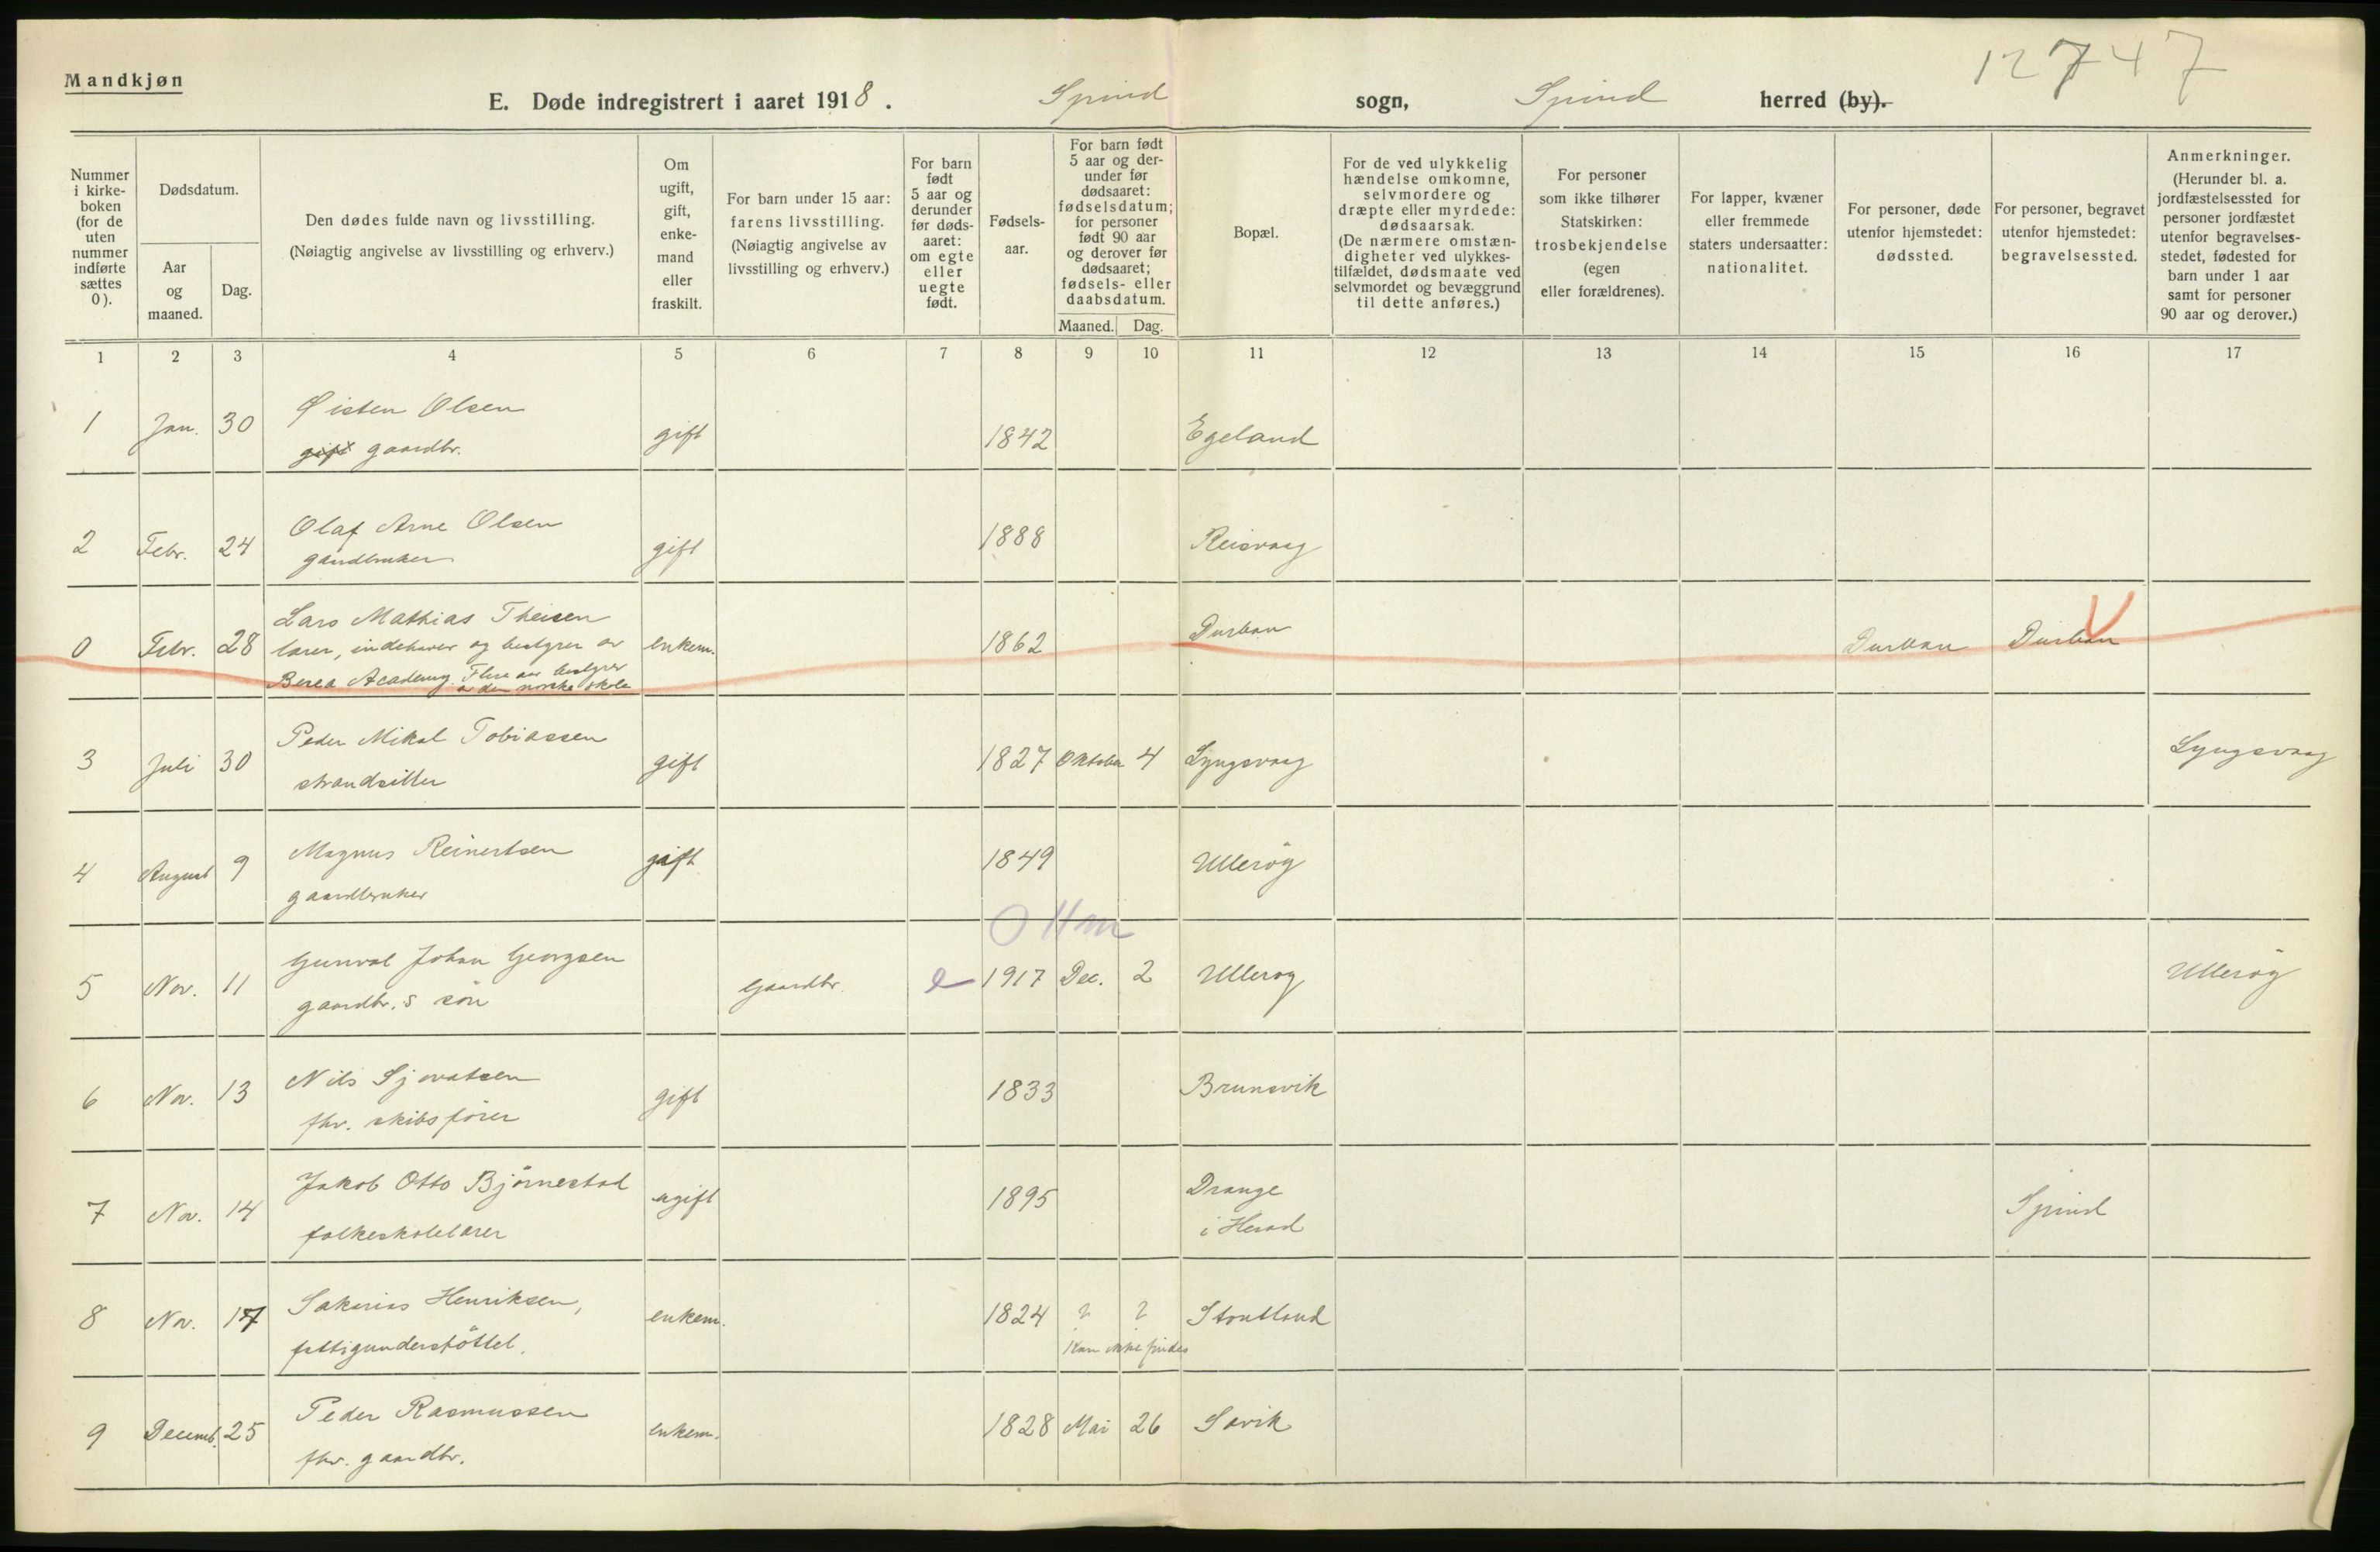 Mandkjøn
E. Døde indregistrert i aaret 1918. Spind sogn, Spind herred (by).
12747
Nummer i kirkeboken (for de uten nummer indførte sættes 0).
Dødsdatum.
Aar og maaned.
Dag.
Den dødes fulde navn og livsstilling.
(Nøiagtig angivelse av livsstilling og erhverv.)
Om ugift, gift, enkemand eller fraskilt.
For barn under 15 aar: farens livsstilling.
(Nøiagtig angivelse av livsstilling og erhverv.)
For barn født 5 aar og derunder før dødsaaret: om egte eller uegte født.
Fødselsaar.
For barn født 5 aar og derunder før dødsaaret: fødselsdatum; for personer født 90 aar og derover før dødsaaret; fødsels- eller daabsdatum.
Maaned. Dag.
Bopæl.
For de ved ulykkelig hændelse omkomne, selvmordere og dræpte eller myrdede: dødsaarsak.
(De nærmere omstændigheter ved ulykkestilfældet, dødsmaate ved selvmordet og bevæggrund til dette anføres.)
For personer som ikke tilhører Statskirken: trosbekjendelse (egen eller forældrenes).
For lapper, kvæner eller fremmede staters undersaatter: nationalitet.
For personer, døde utenfor hjemstedet: dødssted.
For personer, begravet utenfor hjemstedet: begravelsessted.
Anmerkninger.
(Herunder bl. a. jordfæstelsessted for personer jordfæstet utenfor begravelsesstedet, fødested for barn under 1 aar samt for personer 90 aar og derover.)
1 2 3 4 5 6 7 8 9 10 11 12 13 14 15 16 17
1 Jan. 30 Øisten Olsen gift 1842 Egeland
gift gaardbr.
2 Febr. 24 Olaf Arne Olsen gift 1888 Reisvaag
gaardbruker
0 Febr. 28 Lars Mathias Theisen enkem. 1862 Durban Durban Durban
lærer, indehaver og bestyrer av
Berea Academy. Flere aar bestyrer
av den norske skole
3 Juli 30 Peder Mikal Tobiassen gift 1827 Oktober 4 Lyngsvaag Lyngsvaag
strandsitter
4 August 9 Magnus Reinertsen gift 1849 Ullerøy
gaardbruker
0 11 m
5 Nov. 11 Gunval Johan Georgsen Gaardbr. e 1917 Dec. 2 Ullerøy Ullerøy
gaardbr.s søn
6 Nov. 13 Nils Sjovatsen gift 1833 Brunsvik
fhv. skibsfører
7 Nov. 14 Jakob Otto Bjørnestad ugift 1895 Drange i Herad Spind
folkeskolelærer
8 Nov. 17 Sakarias Henriksen, enkem. 1824 ? ? Stoutland
fattigunderstøttet. Kan ikke findes
9 Decemb. 25 Peder Rasmussen enkem. 1828 Mai 26 Sævik
fhv. gaardbr.